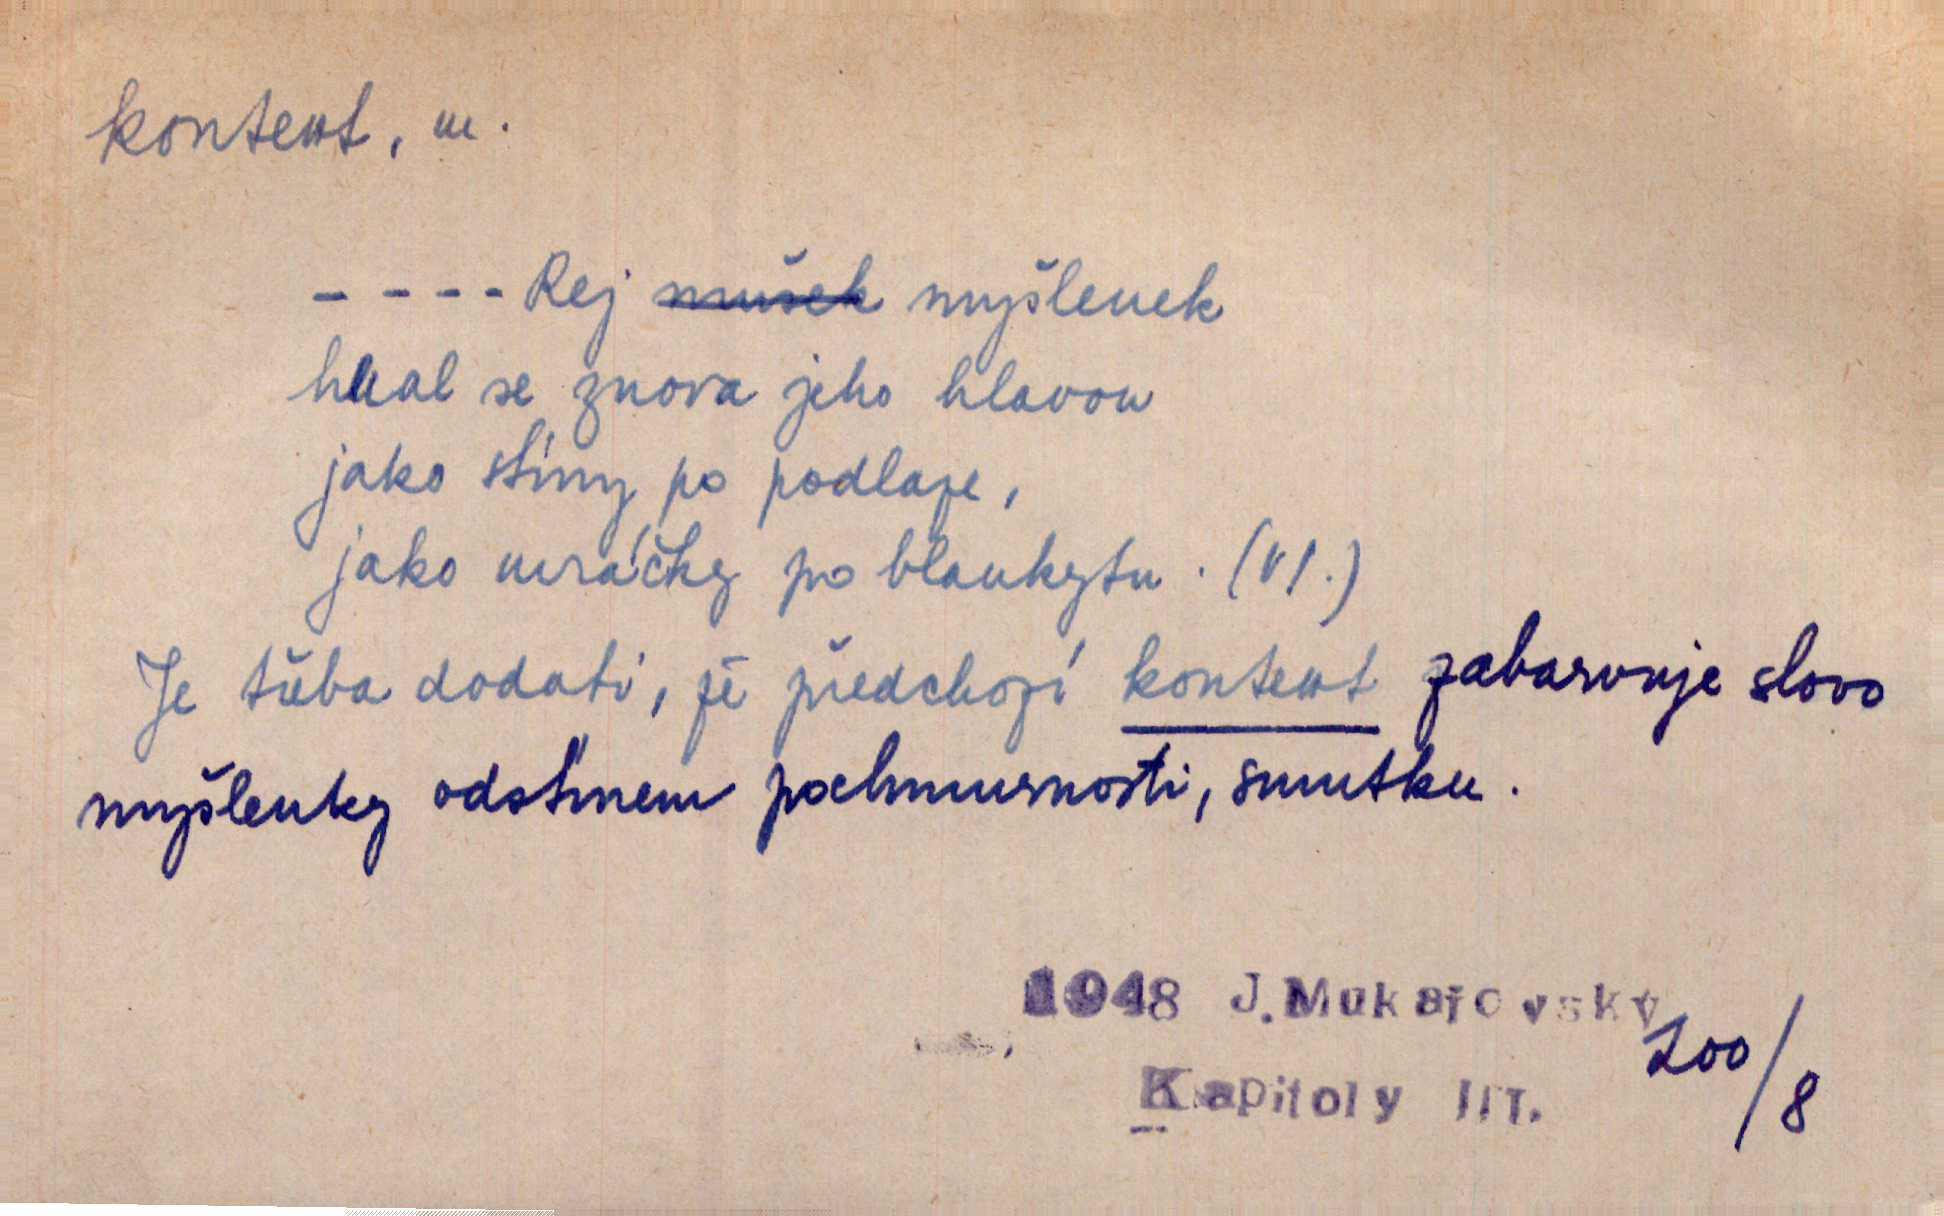 kontext, m.
- - - - Rej mušek myšlenek
hnal se znova jeho hlavou
jako stíny po podlaze,
jako mráčky po blankytu. (VI.)
Je třeba dodati, že předchozí kontext zabarvuje slovo
myšlenky odstínem pochmurnosti, smutku.
1948 J. Mukařovský
200/8
Kapitoly III.